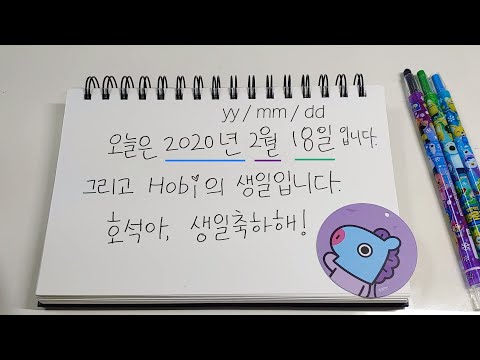 yy / mm / dd
오늘은 2020년 2월 18일 입니다.
그리고 Hobi의 생일입니다.
호석아, 생일축하해!